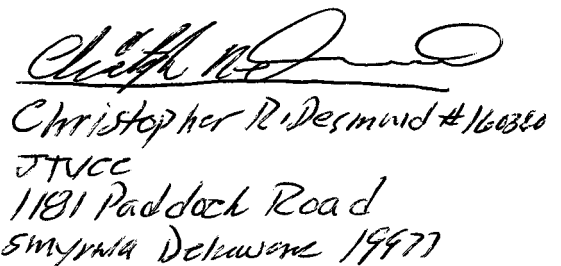 Christopher R. Desmond #160380
JTVCC
1181 Paddock Road
Smyrna Delaware 19977